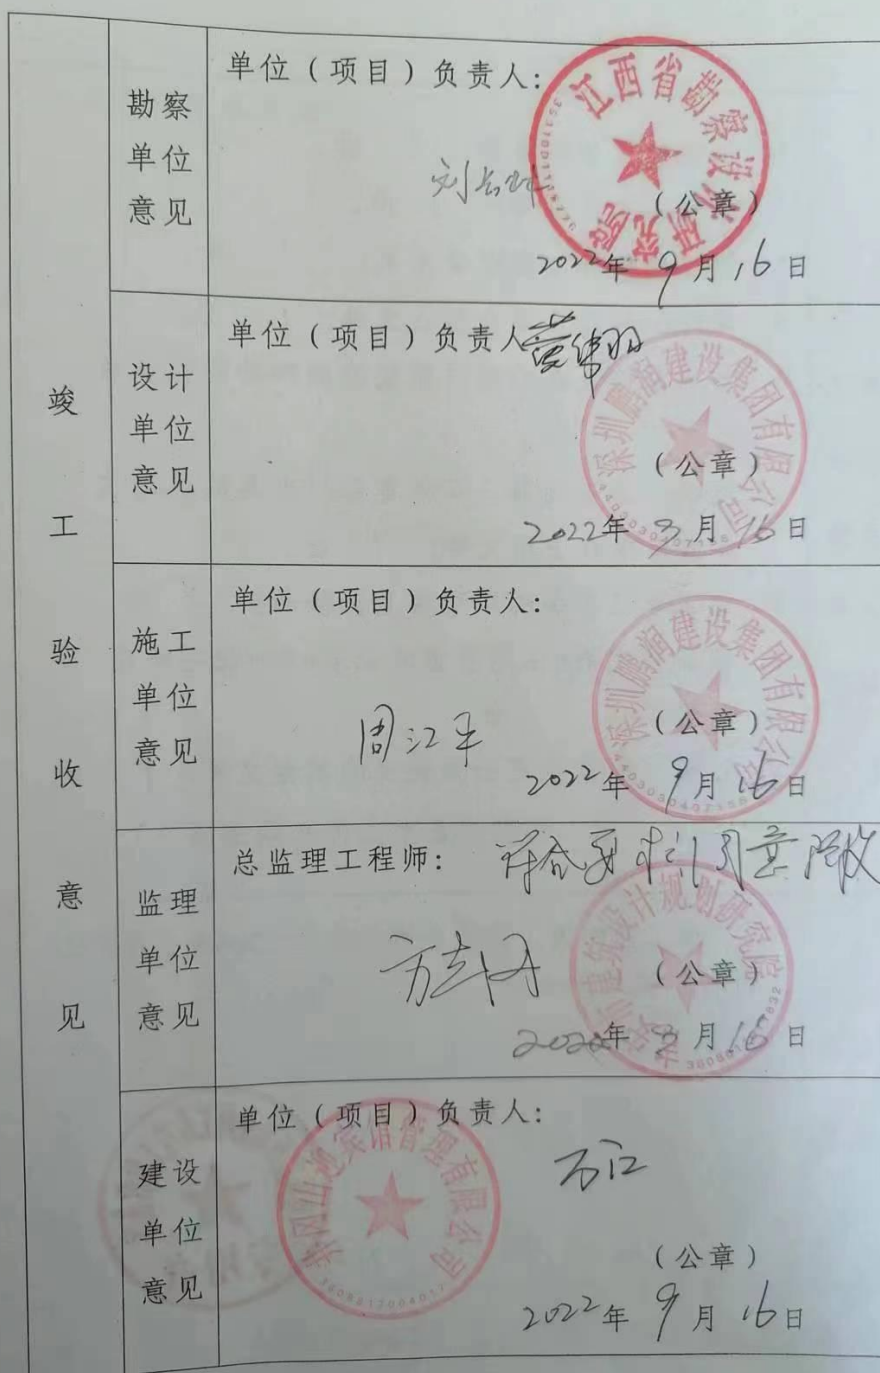 竣工验收意见
勘察单位意见
单位（项目）负责人：
江西省勘察设计研究院
（公章）
2022年9月16日
设计单位意见
单位（项目）负责人
深圳鹏润建设集团有限公司
（公章）
2022年9月16日
施工单位意见
单位（项目）负责人：
深圳鹏润建设集团有限公司
周江平
（公章）
2022年9月16日
监理单位意见
总监理工程师：
同意验收
建筑设计规划研究院
（公章）
年9月16日
建设单位意见
单位（项目）负责人：
井冈山迎宾馆管理有限公司
万江
（公章）
2022年9月16日